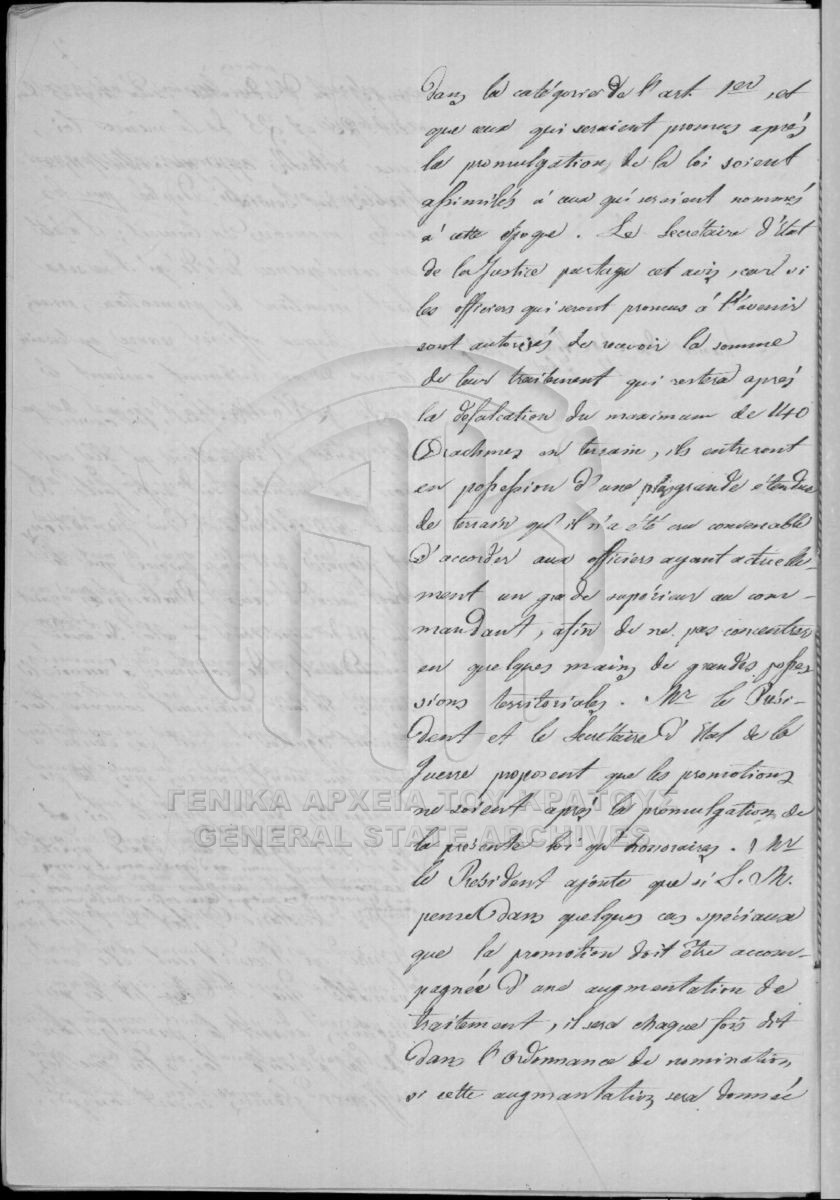 dans la catégorie de l'art. 1er, et
que ceux qui seraient promus après
la promulgation de la loi soient
assimilés à ceux qui seraient nommés
à cette époque. Le Secrétaire d'État
de la Justice partage cet avis, car si
les officiers qui seront promus à l'avenir
sont autorisés de recevoir la somme
de leur traitement qui restera après
la défalcation du maximum de 1140
Drachmes en terrain, ils entreront
en possession d'une plus grande étendue
de terrain qu'il n'a été cru convenable
d'accorder aux officiers ayant actuelle-
ment un grade supérieur au com-
mandant, afin de ne pas concentrer
en quelques mains de grandes posses
sions territoriales. Mr le Prési-
dent et le Secrétaire d'État de la
Guerre proposent que les promotions
ne soient après la promulgation de
la présente loi qu'honoraires. Mr
le Président ajoute que si S. M.
pense dans quelques cas spéciaux
que la promotion doit être accom-
pagnée d'une augmentation de
traitement, il sera chaque fois dit
dans l'Ordonnance de nomination
si cette augmantation sera donnée
ΓΕΝΙΚΑ ΑΡΧΕΙΑ ΤΟΥ ΚΡΑΤΟΥΣ
GENERAL STATE ARCHIVES